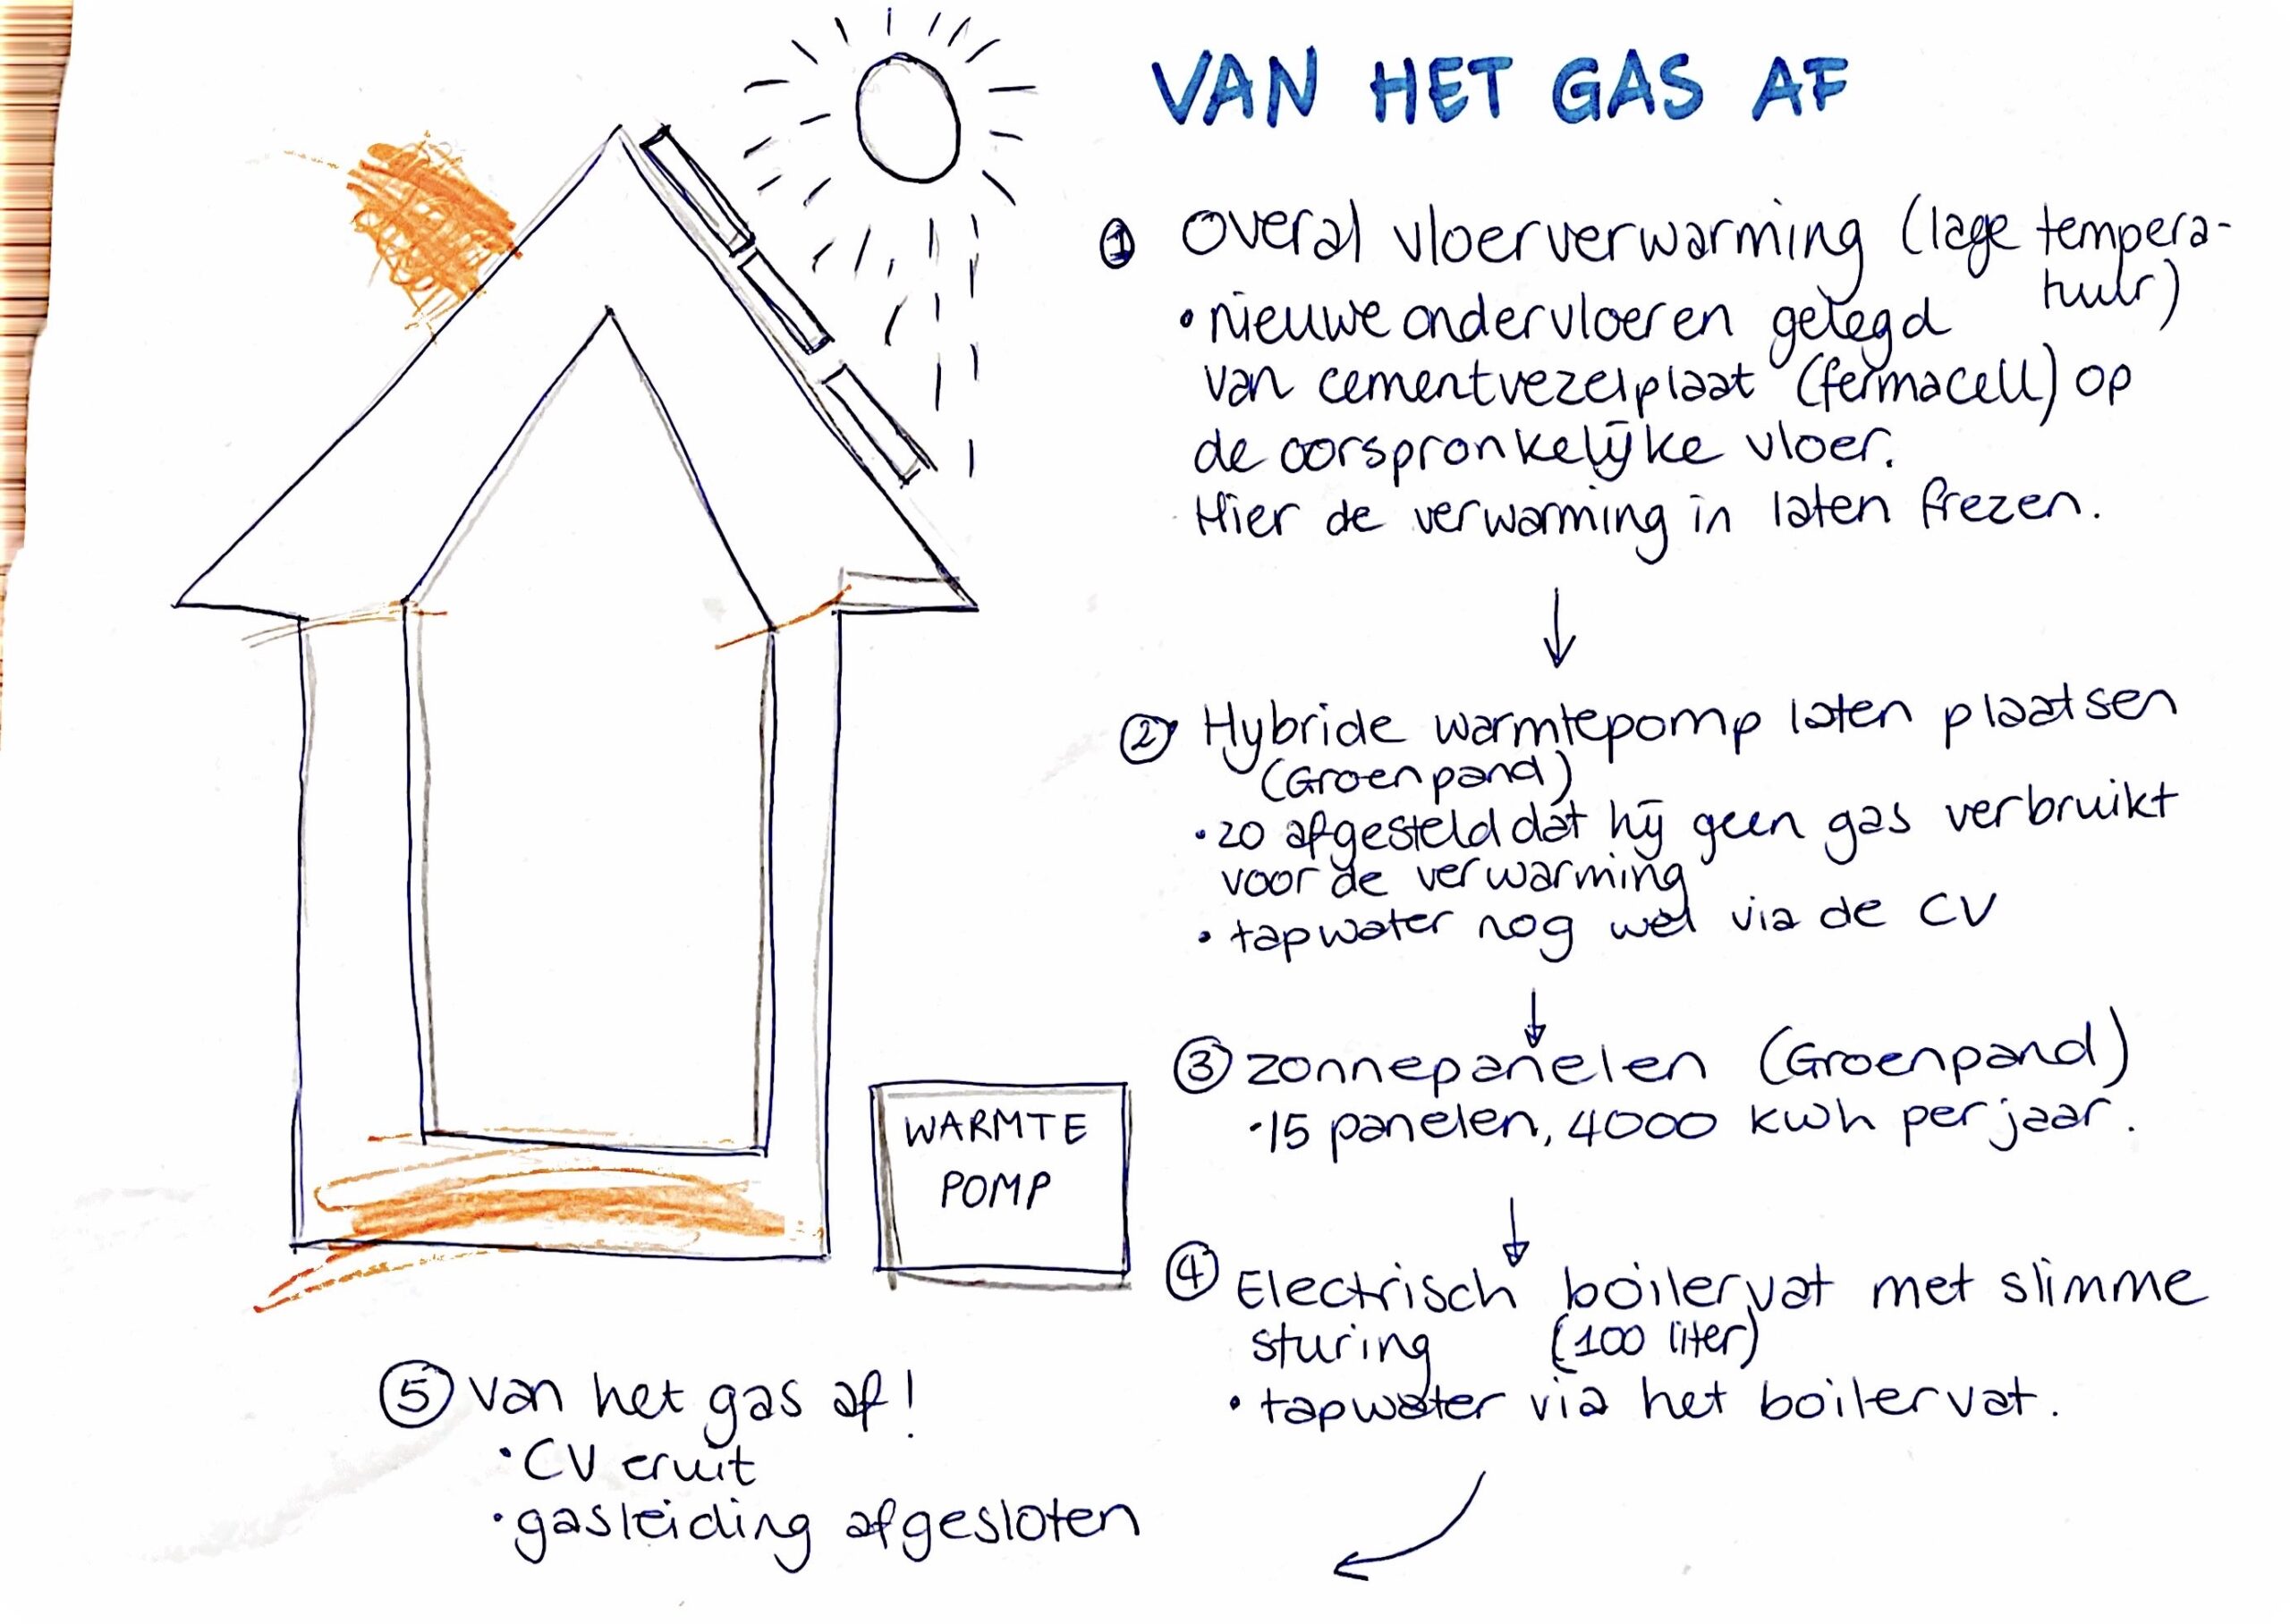 VAN HET GAS AF
① overal vloerverwarming (lage tempera-
tuur)
• nieuwe ondervloeren gelegd
van cementvezelplaat (fermacell) op
de oorspronkelijke vloer.
Hier de verwarming in laten frezen.
② Hybride warmtepomp laten plaatsen
(Groenpand)
• zo afgesteld dat hij geen gas verbruikt
voor de verwarming
• tapwater nog wel via de CV
③ zonnepanelen (Groenpand)
• 15 panelen, 4000 kwh per jaar.
WARMTE
POMP
④ Electrisch boilervat met slimme
sturing (100 liter)
• tapwater via het boilervat.
⑤ van het gas af!
• CV eruit
• gasleiding afgesloten